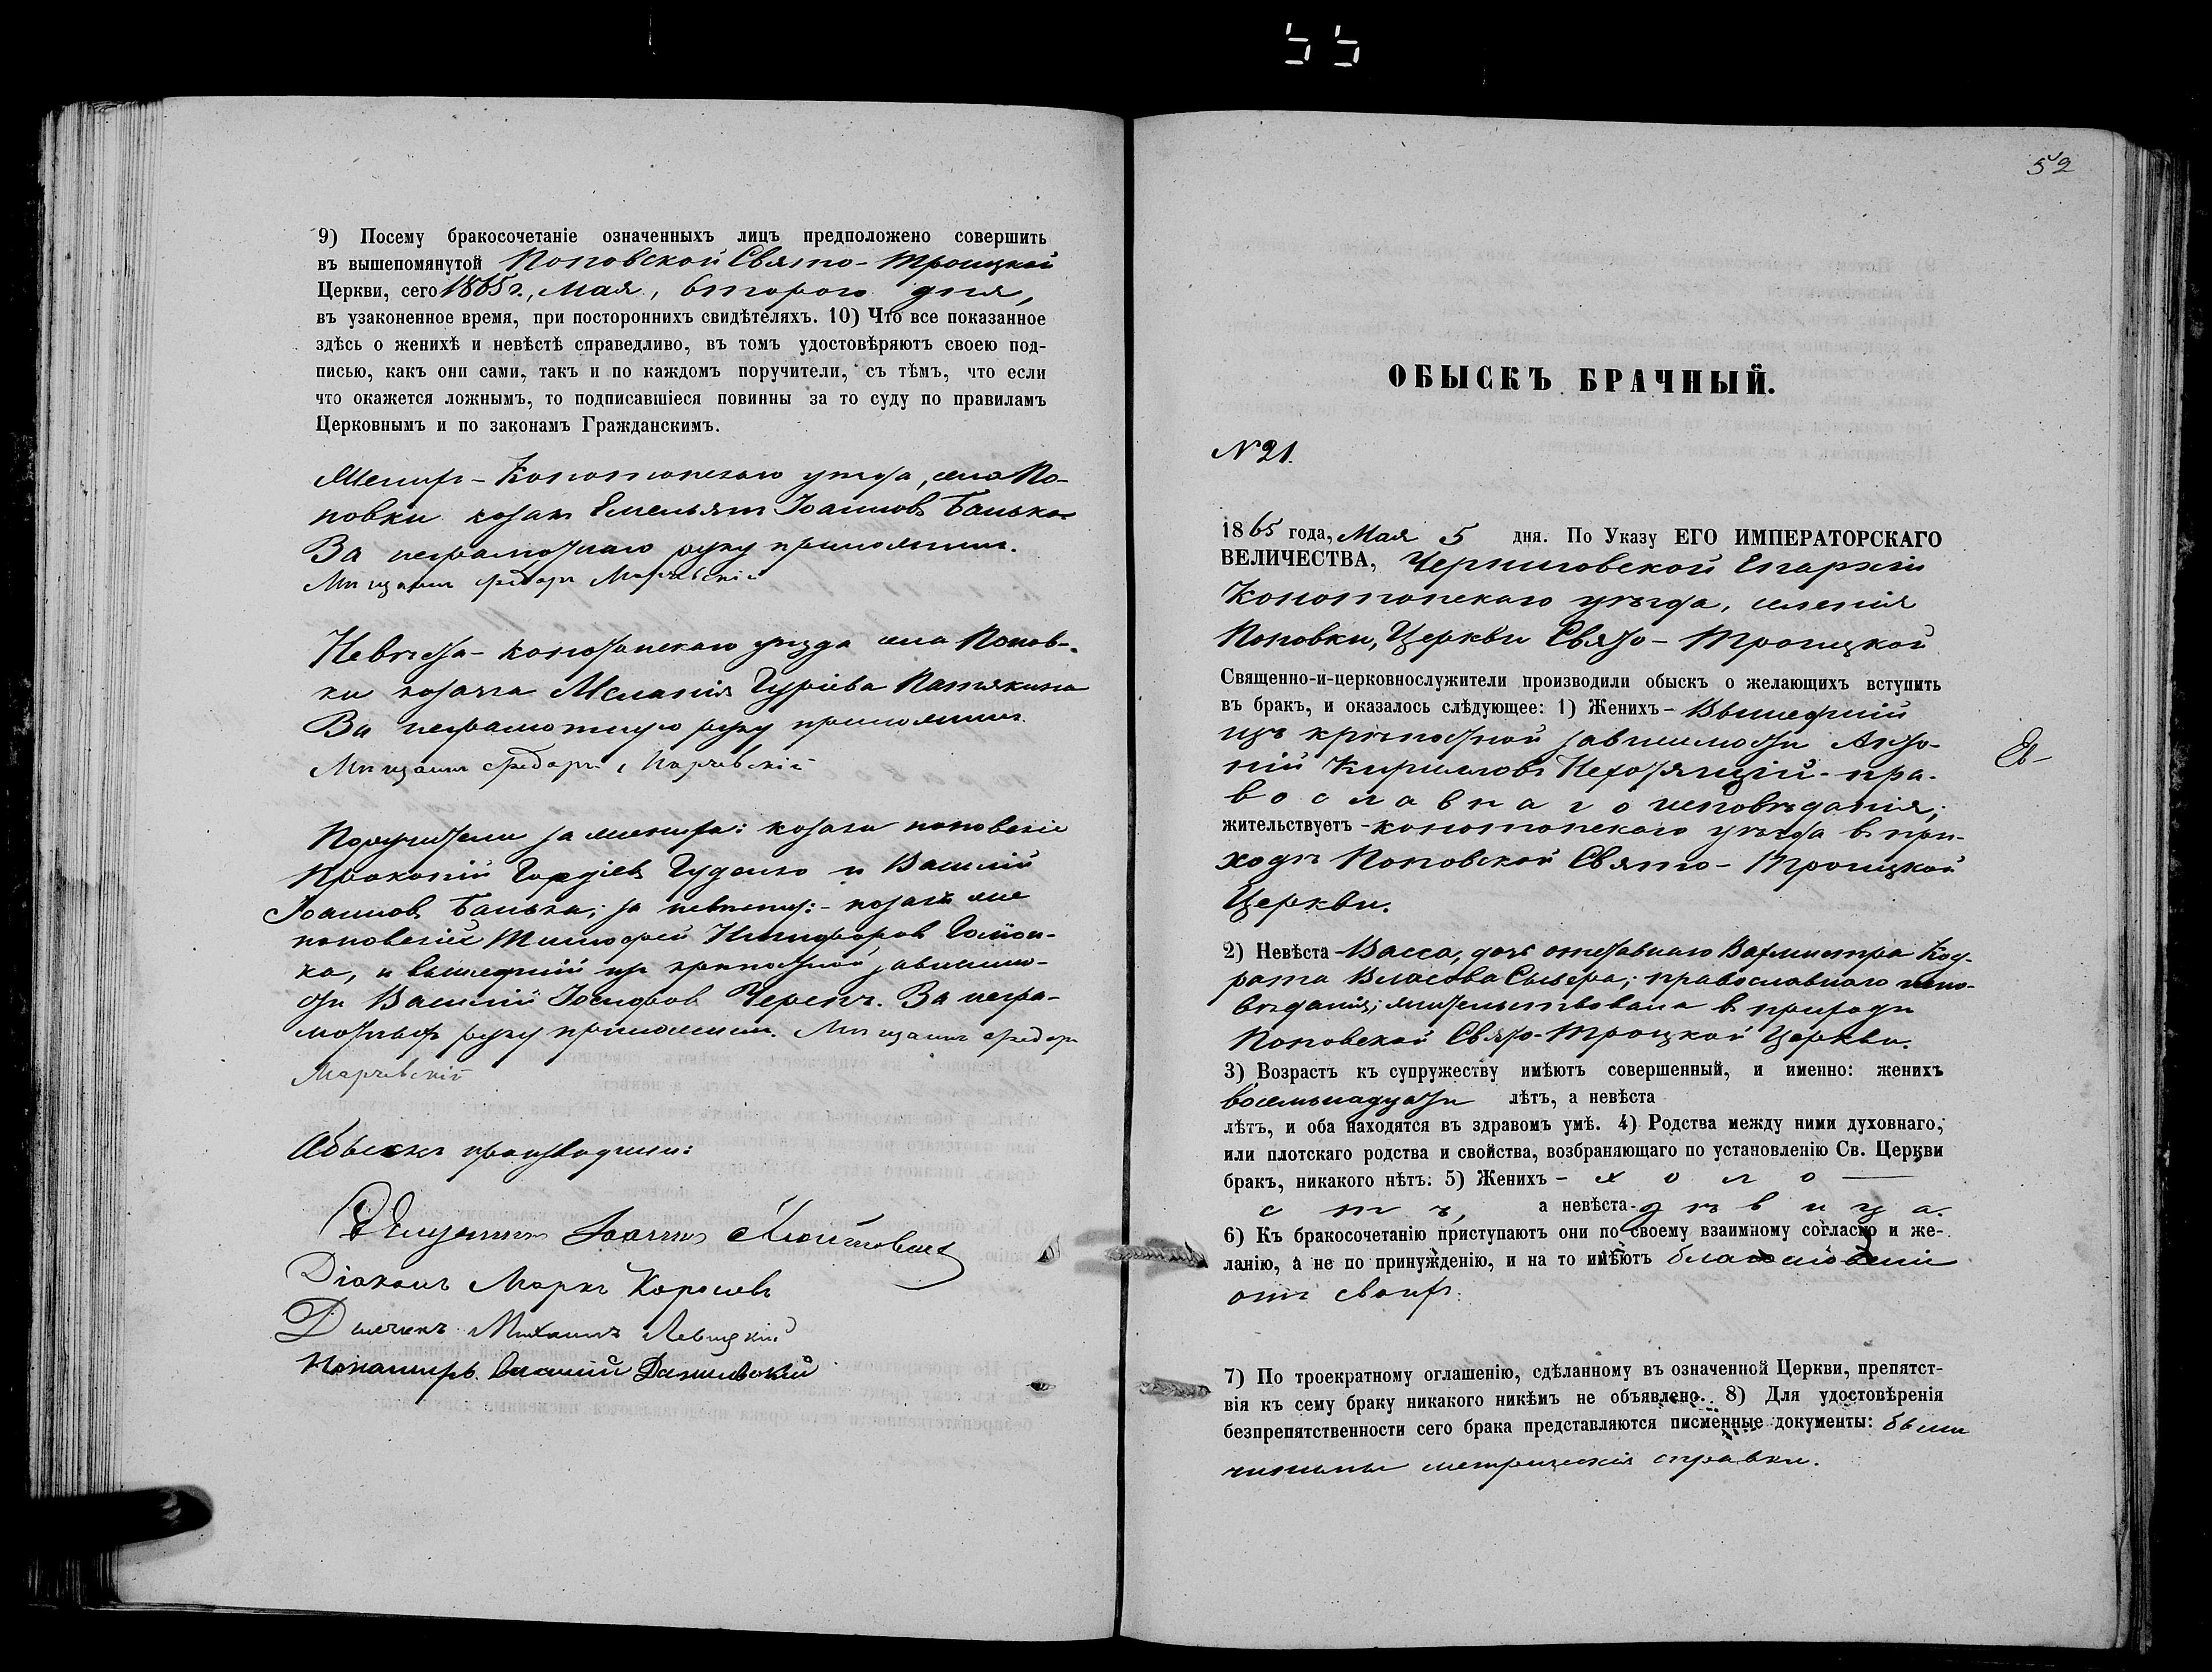 55
9) Посему бракосочетаніе означенныхъ лицъ предположено совершить
въ вышепомянутой Поповской Свято-Троицкой
Церкви, сего 1865 г., мая, второго дня,
въ узаконенное время, при постороннихъ свидѣтеляхъ. 10) Что все показанное
здѣсь о женихѣ и невѣстѣ справедливо, въ томъ удостовѣряютъ своею под-
писью, какъ они сами, такъ и по каждомъ поручители, съ тѣмъ, что если
что окажется ложнымъ, то подписавшіеся повинны за то суду по правиламъ
Церковнымъ и по законамъ Гражданскимъ.
Женихъ - Конотопскаго уѣзда, села По-
повки козакъ Емельянъ Іоанновъ Банько
За неграмотнаго руку приложилъ.
Мѣщанинъ Федоръ
Невѣста - Конотопскаго уѣзда села Попов-
ки козачка Меланія Гуріева
За неграмотную руку приложилъ
Мѣщанинъ Федоръ
Поручители за жениха: козаки поповскіе
Прокопій Гордіевъ Гуденко и Василій
Іоанновъ Банько; за невѣсту: - козакъ же
поповскій Тимофей Никифоровъ
ка, и вышедшій изъ крѣпостной зависимо-
сти Василій Черепъ. За негра-
мотныхъ руку приложилъ. Мѣщанинъ Федоръ
Обыскъ производили:
Священникъ Іоаннъ
Діаконъ Маркъ
Дьячекъ Михаилъ Левицкій
Пономарь Василій Данилевскій
52
ОБЫСКЪ БРАЧНЫЙ.
№ 21.
1865 года, Мая 5 дня. По Указу ЕГО ИМПЕРАТОРСКАГО
ВЕЛИЧЕСТВА, Черниговской Епархіи
Конотопскаго уѣзда, селенія
Поповки, Церкви Свято-Троицкой
Священно-и-церковнослужители производили обыскъ о желающихъ вступить
въ бракъ, и оказалось слѣдующее: 1) Женихъ - Вышедшій
изъ крѣпостной зависимости Анто-
ній Кирилловъ - пра-
вославнаго исповѣданія;
жительствуетъ - Конотопскаго уѣзда въ при-
ходѣ Поповской Свято-Троицкой
Церкви.
2) Невѣста - Васса, дочь отставнаго Вахмистра Код-
рата Власова; православнаго испо-
вѣданія; жительствовала въ приходѣ
Поповской Свято-Троицкой Церкви.
3) Возрастъ къ супружеству имѣютъ совершенный, и именно: женихъ
восемьнадцати лѣтъ, а невѣста
лѣтъ, и оба находятся въ здравомъ умѣ. 4) Родства между ними духовнаго,
или плотскаго родства и свойства, возбраняющаго по установленію Св. Церкви
бракъ, никакого нѣтъ. 5) Женихъ - холо-
стъ, а невѣста - дѣвица.
6) Къ бракосочетанію приступаютъ они по своему взаимному согласію и же-
ланію, а не по принужденію, и на то имѣютъ благословеніе
отъ своихъ.
7) По троекратному оглашенію, сдѣланному въ означенной Церкви, препятст-
вія къ сему браку никакого никѣмъ не объявлено. 8) Для удостовѣренія
безпрепятственности сего брака представляются письменные документы: были
чинимы метрическія справки.